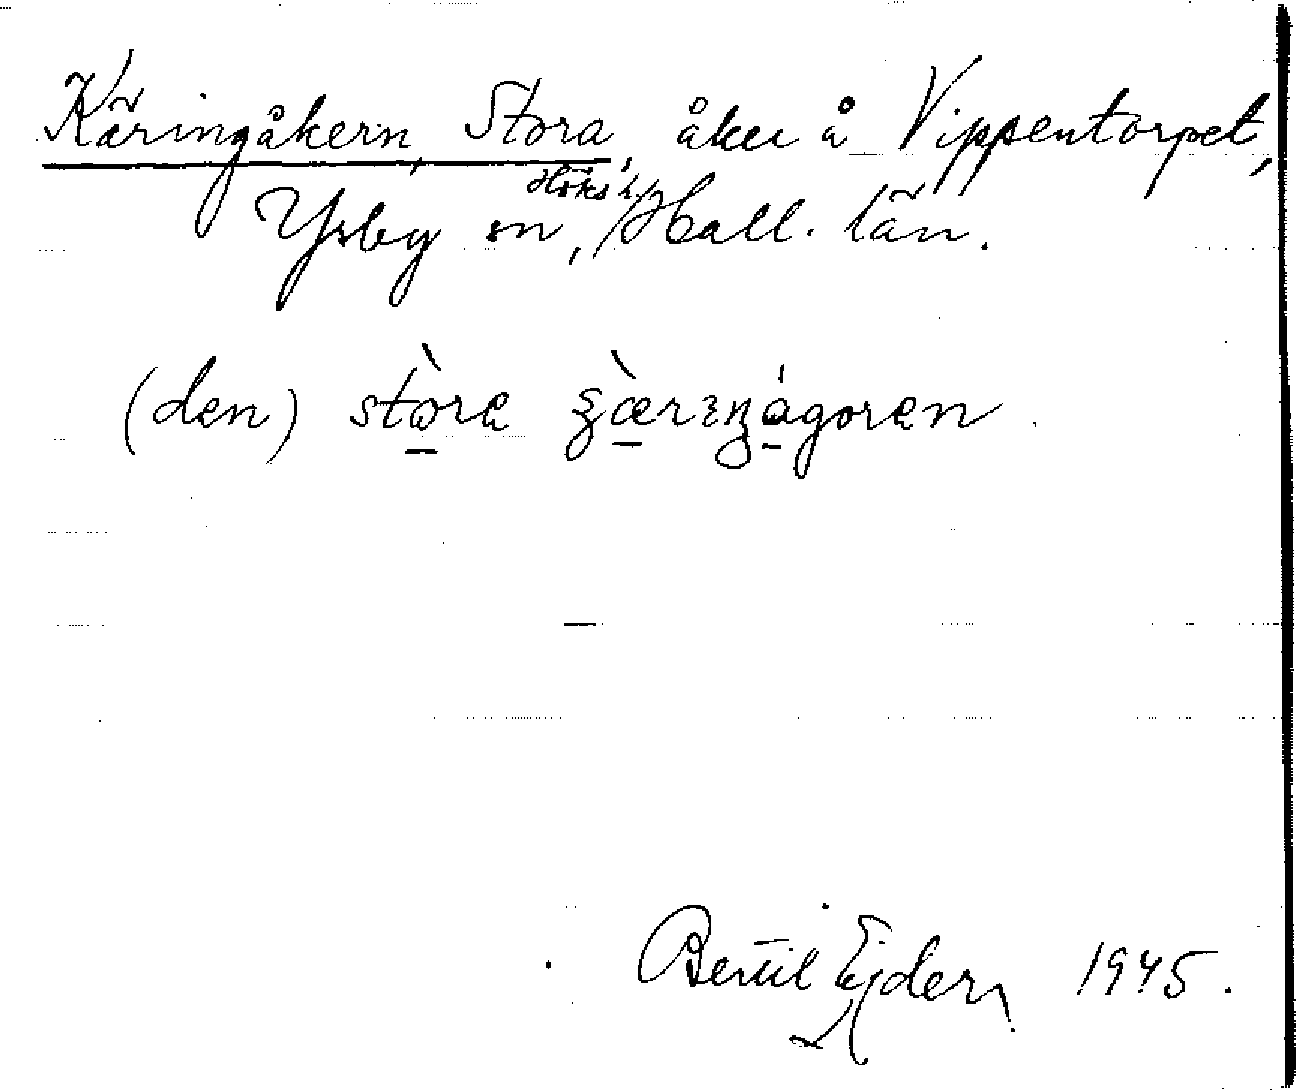 Käringåkern, Stora, åker å Vippentorpet,
Ysby sn, Höks h., Hall. län.
(den)
Bertil Ejder 1945.